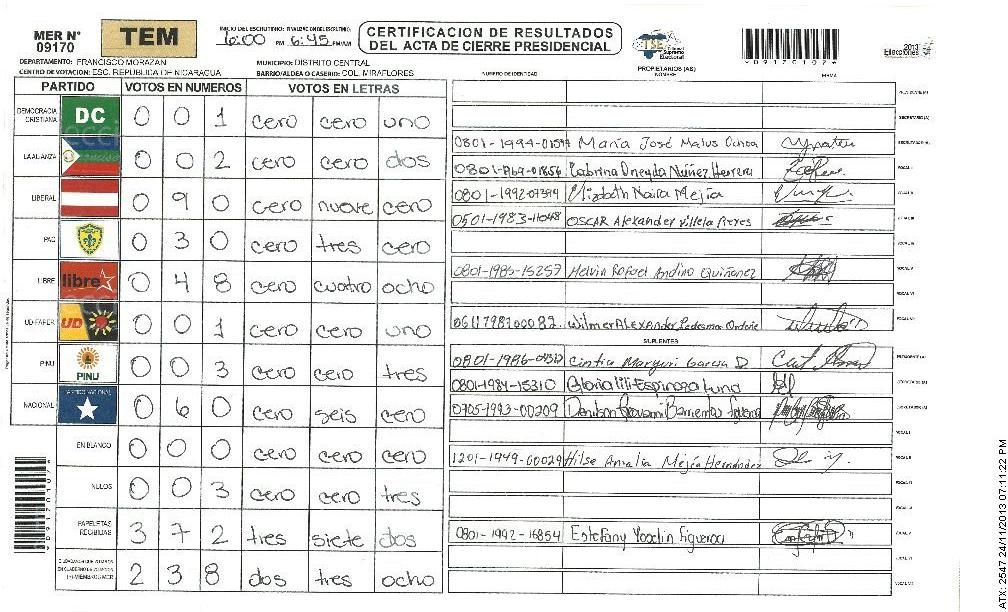 MER N° 09170
TEM
INICIO DEL ESCRUTINIO: FINALIZACION DEL ESCRUTINIO:
6:00 PM 6:45 PM/AM
CERTIFICACION DE RESULTADOS
DEL ACTA DE CIERRE PRESIDENCIAL
TSE Tribunal Supremo Electoral
2013
Elecciones
DEPARTAMENTO: FRANCISCO MORAZAN
MUNICIPIO: DISTRITO CENTRAL
CENTRO DE VOTACION: ESC. REPUBLICA DE NICARAGUA
BARRIO/ALDEA O CASERIO: COL. MIRAFLORES
NUMERO DE IDENTIDAD
PROPIETARIOS (AS)
NOMBRE
FIRMA
PARTIDO VOTOS EN NUMEROS VOTOS EN LETRAS
DEMOCRACIA CRISTIANA DC 0 0 1 cero cero uno
LA ALIANZA 0 0 2 cero cero dos
LIBERAL 0 9 0 cero nueve cero
PAC 0 3 0 cero tres cero
LIBRE libre 0 4 8 cero cuatro ocho
UD-FAPER UD 0 0 1 cero cero uno
PINU PINU 0 0 3 cero cero tres
NACIONAL 0 6 0 cero seis cero
EN BLANCO 0 0 0 cero cero cero
NULOS 0 0 3 cero cero tres
PAPELETAS RECIBIDAS 3 7 2 tres siete dos
2 3 8 dos tres ocho
María José Matus Ochoa
Núñez Herrera
Elizabeth Naira Mejía
0501-1983-11048 OSCAR Alexander Villela
0801-1985-15257 Melvin Rafael Andino Quiñonez
Wilmer ALEXAnder Ledesma
SUPLENTES
Cintia Maryuri Garcia D
0801-1984-15310 Gloria lili Espinoza Luna
0705-1993-00209
1201-1949-00029 Hilse Amalia Mejía Hernández
0801-1992-16854 Estefany Yoselin Figueroa
ATX: 2547 24/11/2013 07:11:22 PM